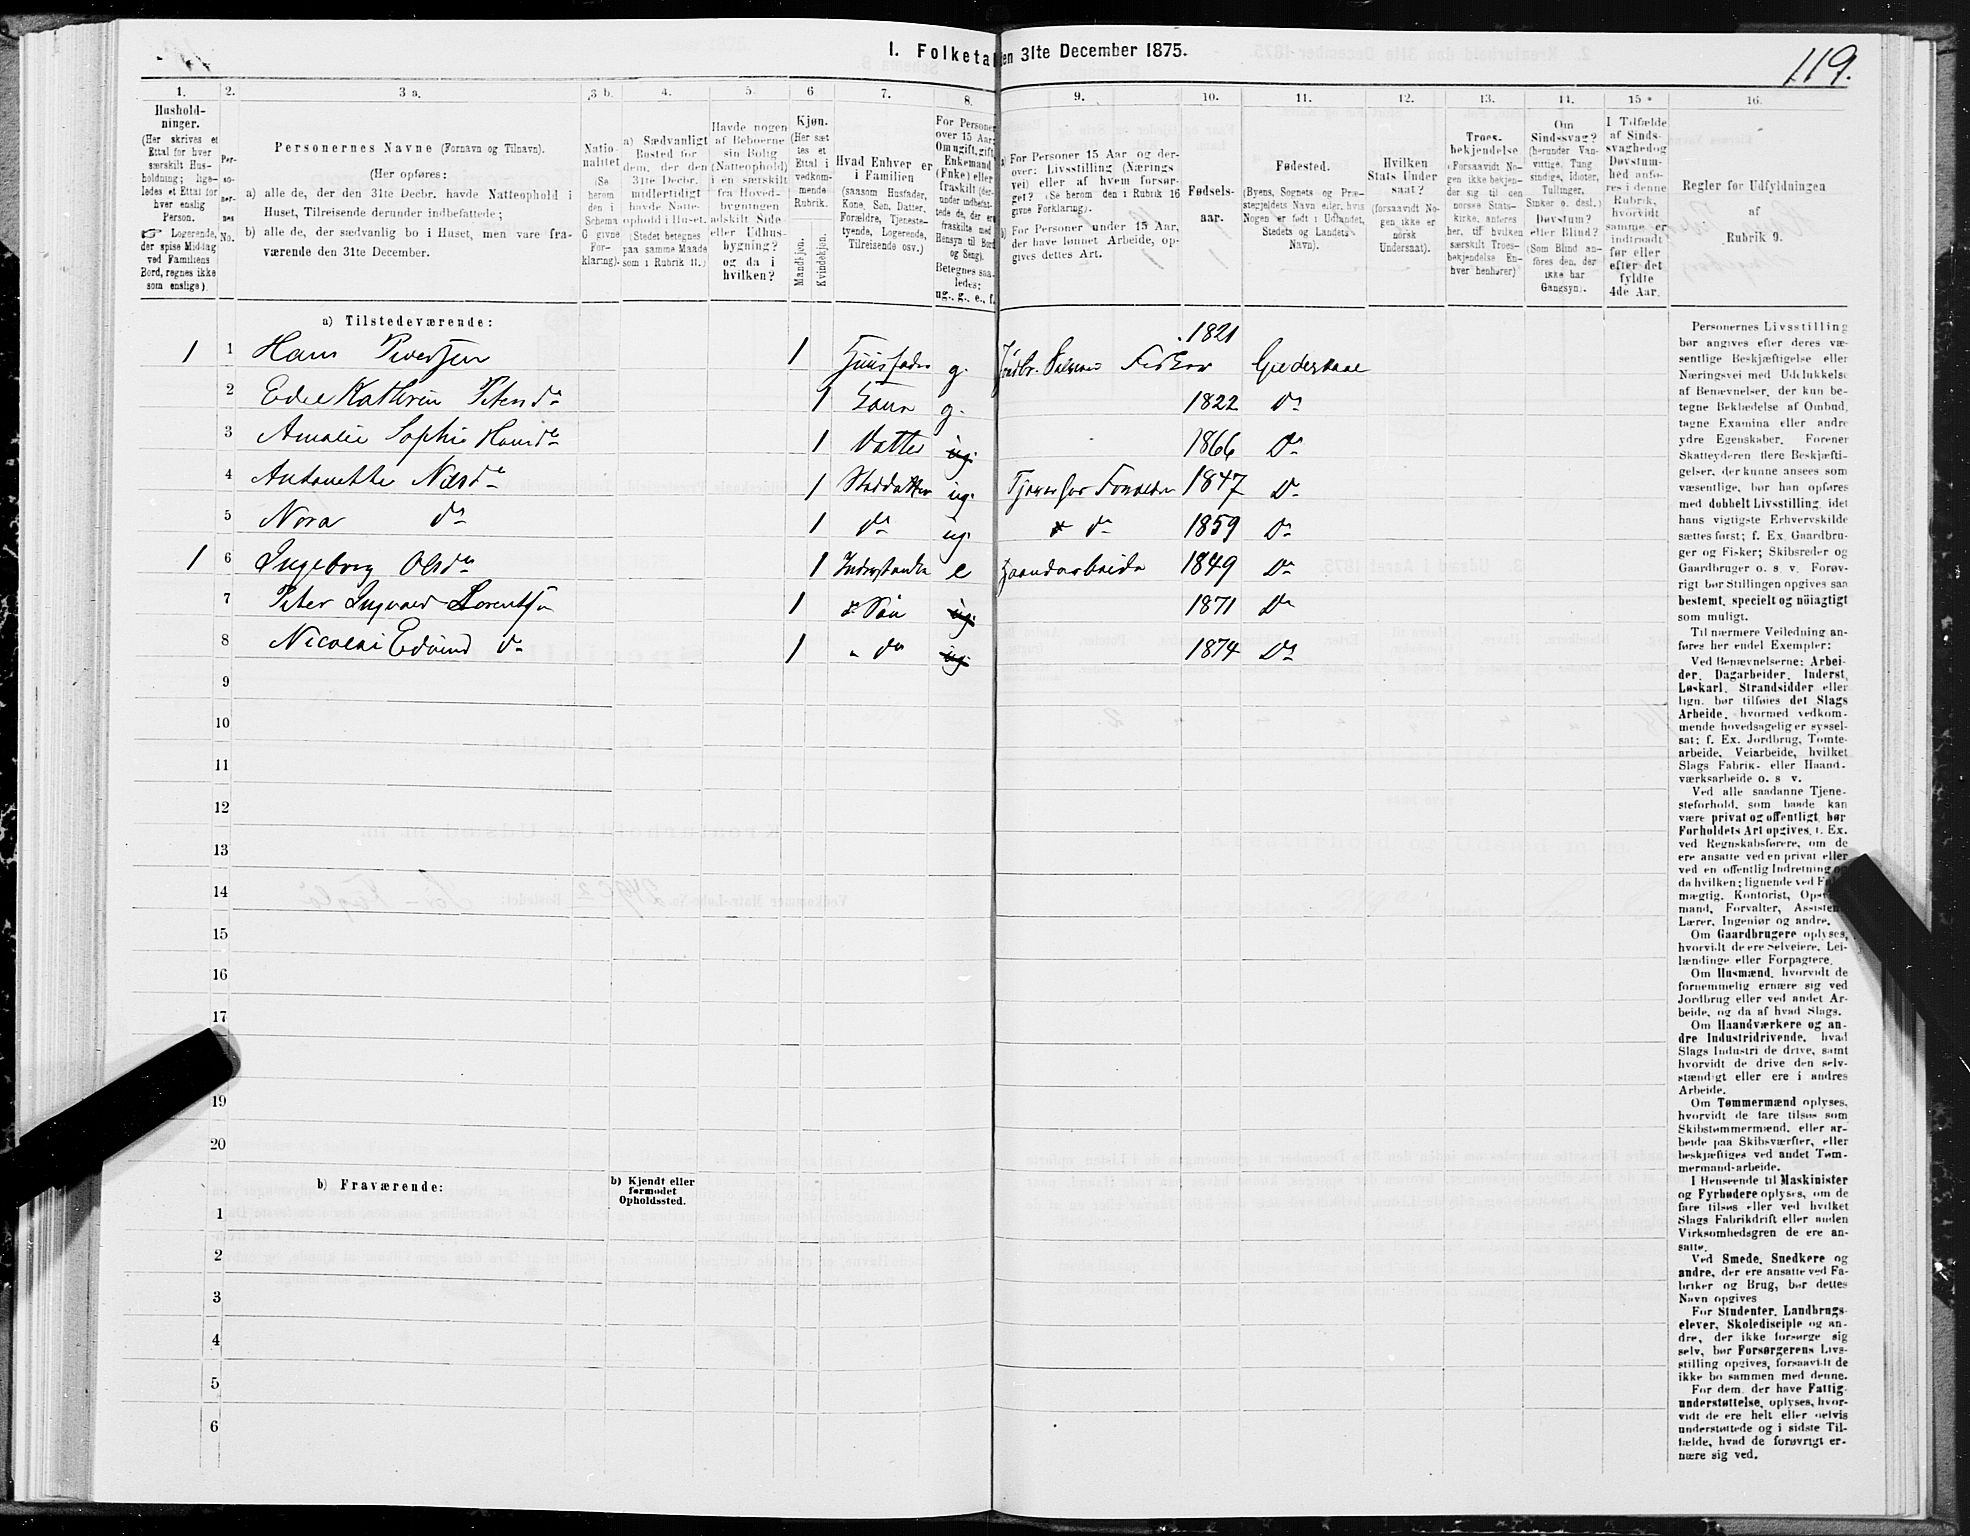 119.
I. Folketa en 31te December 1875.
1. 2. 3 a. 3 b. 4. 5. 6 7. 8. 9. 10. 11. 12. 13. 14. 15 16.
Hushold-
ninger.
(Her skrives et
Ettal for hver
særskilt Hus-
holdning; lige-
ledes et Ettal for
hver enslig
Person.
☞ Logerende,
der spise Middag
ved Familiens
Bord, regnes ikke
som enslige).
Per-
so-
ner-
nes
No.
Personernes Navne (Fornavn og Tilnavn).
(Her opføres:
a) alle de, der den 31te Decbr. havde Natteophold i
Huset, Tilreisende derunder indbefattede;
b) alle de, der sædvanlig bo i Huset, men vare fra-
værende den 31te December.
Natio-
nalitet
(Se
herom
den i
Schema
G givne
For-
klaring).
a) Sædvanligt
Bosted for
dem, der den
31te Decbr.
midlertidigt
havde Natte-
ophold i Huset.
(Stedet betegnes
paa samme Maade
som i Rubrik 11.)
Havde nogen
af Beboerne
sin Bolig
(Natteophold)
i en særskilt
fra Hoved-
bygningen
adskilt Side-
eller Udhus-
bygning?
og da i
hvilken?
Kjøn.
(Her sæt-
tes et
Ettal i
vedkom-
mende
Rubrik.
Mandkjøn.
Kvindekjøn.
Hvad Enhver er
i Familien
(saasom Husfader,
Kone, Søn, Datter,
Forældre, Tjeneste-
tyende, Logerende,
Tilreisende osv.)
For Personer
over 15 Aar:
Om ugift, gift,
Enkemand
(Enke) eller
fraskilt (der-
under indbefat-
tede de, der ere
fraskilte med
Hensyn til Bord
og Seng).
Betegnes saa-
ledes:
ug., g., e., f.
a) For Personer 15 Aar og der-
over: Livsstilling (Nærings
vei) eller af hvem forsør-
get? (Se herom den i Rubrik 16
givne Forklaring).
b) For Personer under 15 Aar,
der have lønnet Arbeide, op-
gives dettes Art.
Fødsels-
aar.
Fødested.
(Byens, Sognets og Præ-
stegjeldets Navn eller, hvis
Nogen er født i Udlandet,
Stedets og Landets
Navn).
Hvilken
Stats Under
saat?
(forsaavidt No-
gen ikke er
norsk
Undersaat).
Troes-
bekjendelse
(Forsaavidt No-
gen ikke bekjen-
der sig til den
norske Stats-
kirke, anføres
her, til hvilken
særskilt Troes-
bekjendelse En-
hver henhører)
Om
Sindssvag?
(herunder Van-
vittige, Tung
sindige, Idioter,
Tullinger,
Sinker o. desl.)
Døvstum?
eller Blind?
(Som Blind an-
føres den, der
ikke har
Gangsyn).
I Tilfælde
af Sinds-
svaghed og
Døvstum-
hed anfø-
res i denne
Rubrik,
hvorvidt
samme er
indtraadt
før eller
efter det
fyldte
4de Aar.
Regler for Udfyldningen
af
Rubrik 9.
a) Tilstedeværende:
1 1 Hans Pedersen 1 Huusfader g. Fisker 1821 Gildeskaal
2 Edel Kathrin Petersdr 1 Kone g. 1822 Do
3 Amalie Sophie Hansdr 1 Datter ug. 1866 Do
4 Antonette Nilsdr 1 Steddatter ug. Tjener for Forældre 1847 Do
5 Nora do 1 do ug. do 1859 Do
1 6 Ingeborg Olsdr 1 Inderstenke e Haandarbeide 1849 Do
7 Peter Ingvard Lorentsøn 1 Søn ug. 1871 Do
8 Nicolai Edvind do 1 " do ug. 1874 Do
9
10
11
12
13
14
15
16
17
19
20
b) Fraværende:
b) Kjendt eller
formodet
Opholdssted.
1
2
3
4
5
6
Personernes Livsstilling
bør angives efter deres væ-
sentlige Beskjæftigelse eller
Næringsvei med Udelukkelse
af Benævnelser, der kun be-
tegne Beklædelse af Ombud,
tagne Examina eller andre
ydre Egenskaber. Forener
Skatteyderen flere Beskjæfti-
gelser, der kunne ansees som
væsentlige, bør han opføres
med dobbelt Livsstilling, idet
hans vigtigste Erhvervskilde
sættes først; f. Ex. Gaardbru-
ger og Fisker; Skibsreder og
Gaardbruger o. s. v. Forøv-
rigt bør Stillingen opgives saa
bestemt, specielt og nøiagtigt
som muligt.
Til nærmere Veiledning an-
føres her endel Exempler:
Ved Benævnelserne: Arbei-
der, Dagarbeider, Inderst,
Løskarl, Strandsidder eller
lign. bør tilføies det Slags
Arbeide, hvormed vedkom-
mende hovedsagelig er syssel-
sat; f. Ex. Jordbrug, Tomte-
arbeide, Veiarbeide, hvilket
Slags Fabrik- eller Haand-
værksarbeide o. s v.
Ved alle saadanne Tjene-
steforhold, som baade kan
være privat og offentligt, bør
Forholdets Art opgives, f. Ex.
ved Regnskabsførere, om de
ere ansatte ved en privat eller
ved en offentlig Indretning og
da hvilken; lignende ved
mægtig, Kontorist,
mand, Forvalter,
Lærer, Ingeniør og andre.
Om Gaardbrugere oplyses,
hvorvidt de ere Selveiere, Lei-
lændinge eller Forpagtere.
Om Husmænd, hvorvidt de
fornemmelig ernære sig ved
Jordbrug eller ved andet Ar-
beide, og da af hvad Slags.
Om Haandværkere og an-
dre Industridrivende, hvad
Slags Industri de drive, samt
hvorvidt de drive den selv-
stændigt eller ere i andres
Arbeide.
Om Tømmermænd oplyses,
hvorvidt de fare tilsøs som
Skibstømmermænd, eller ar-
beide paa Skibsværfter, eller
beskjæftiges ved andet Tøm-
mermand-arbeide.
I Henseende til Maskinister
og Fyrbødere oplyses, om de
fare tilsøs eller ved hvilket
Slags Fabrikdrift eller anden
Virksomhedsgren de ere an-
satte.
Ved Smede, Snedkere og
andre, der ere ansatte ved Fa-
briker og Brug, bør dettes
Navn opgives
For Studenter, Landbrugs-
elever, Skoledisciple og an-
dre, der ikke forsørge sig
selv, bør Forsørgerens Livs-
stilling opgives, forsaavidt de
ikke bo sammen med denne.
For dem, der have Fattig-
understøttelse, oplyses, hvor-
vidt de ere helt eller delvis
understøttede og i sidste Til-
fælde, hvad de forøvrigt er-
nære sig ved.